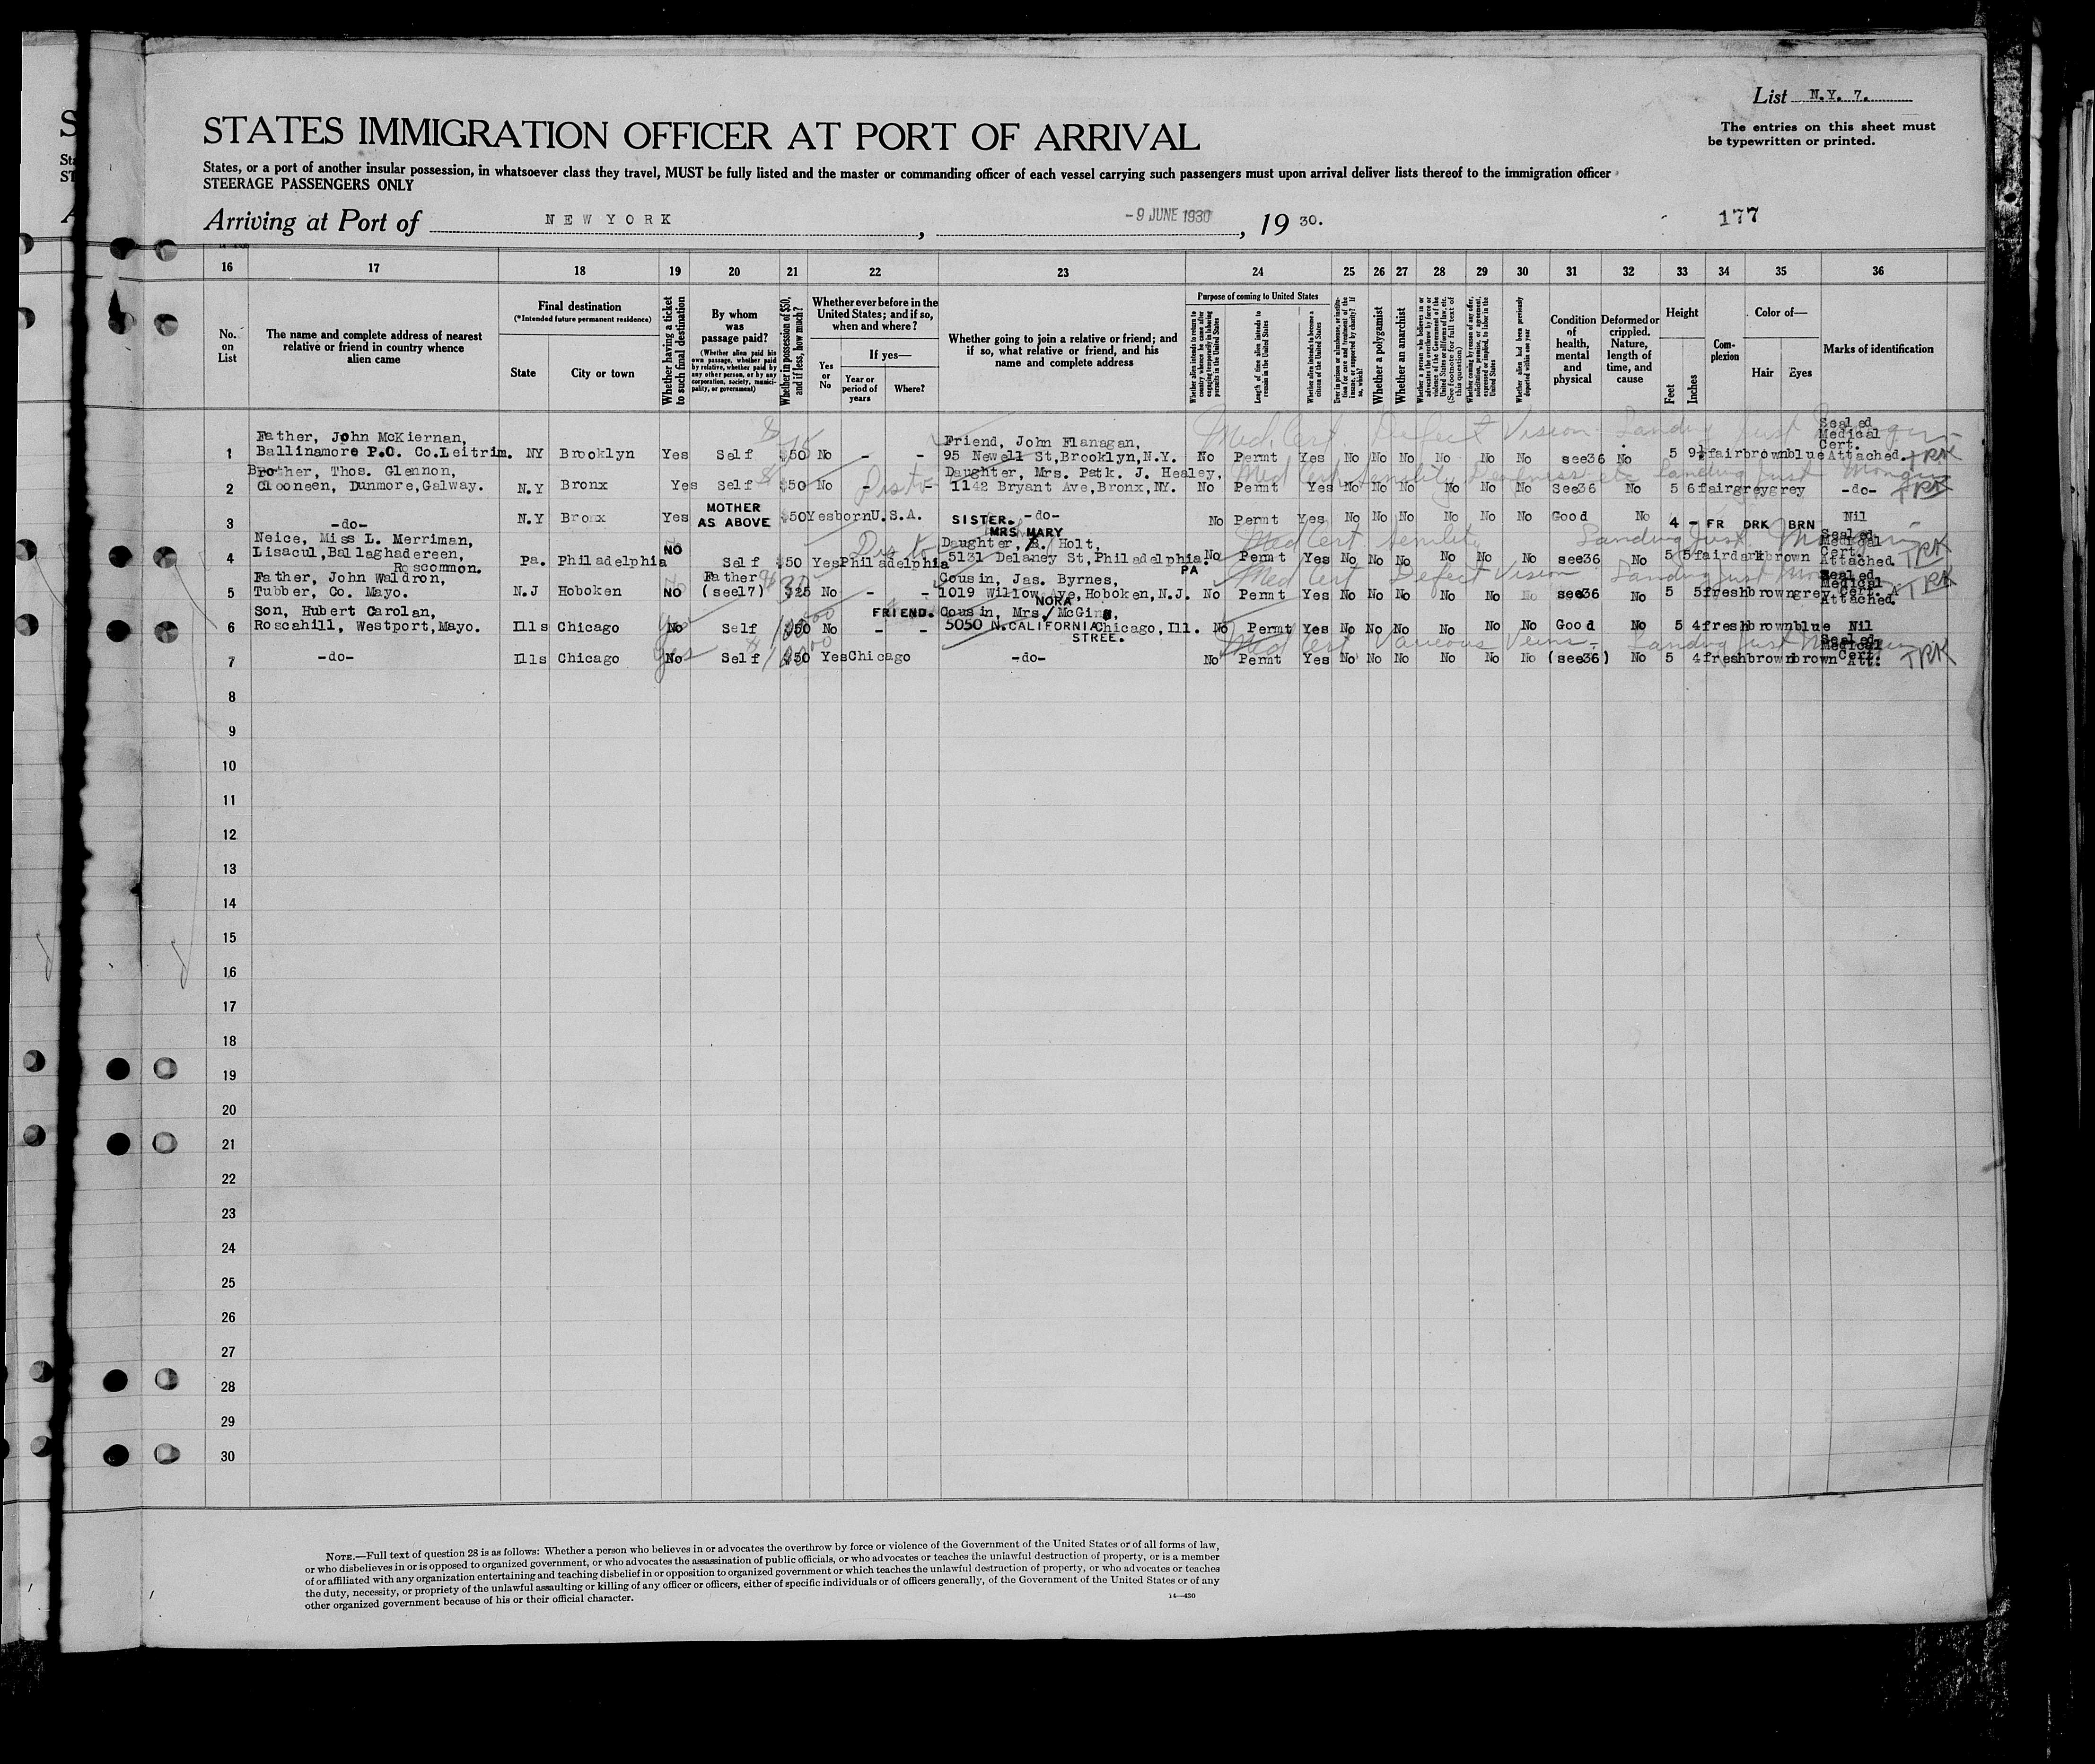 List N.Y. 7.
STATES IMMIGRATION OFFICER AT PORT OF ARRIVAL
The entries on this sheet must
be typewritten or printed.
States, or a port of another insular possession, in whatsoever class they travel, MUST be fully listed and the master or commanding officer of each vessel carrying such passengers must upon arrival deliver lists thereof to the immigration officer
STEERAGE PASSENGERS ONLY
Arriving at Port of NEW YORK, -9 JUNE 1930, 19 30.
177
16 17 18 19 20 21 22 23 24 25 26 27 28 29 30 31 32 33 34 35 36
No. on List
The name and complete address of nearest
relative or friend in country whence
alien came
Final destination
(*Intended future permanent residence)
State
City or town
Whether having a ticket
to such final destination
By whom
was
passage paid?
(Whether alien paid his
own passage, whether paid
by relative, whether paid by
any other person, or by any
corporation, society, munici-
pality, or government)
Whether in possession of $50,
and if less, how much?
Whether ever before in the
United States; and if so,
when and where?
Yes
or
No
If yes—
Year or
period of
years
Where?
Whether going to join a relative or friend; and
if so, what relative or friend, and his
name and complete address
Purpose of coming to United States
Whether alien intends to return to
country whence he came after
engaging temporarily in laboring
pursuits in the United States
Length of time alien intends to
remain in the United States
Whether alien intends to become a
citizen of the United States
Ever in prison or almshouse, or institu-
tion for care and treatment of the
insane, or supported by charity? If
so, which?
Whether a polygamist
Whether an anarchist
Whether a person who believes in or
advocates the overthrow by force or
violence of the Government of the
United States or all forms of law, etc.
(See footnote for full text of
this question)
Whether coming by reason of any offer,
solicitation, promise, or agreement,
expressed or implied, to labor in the
United States
Whether alien had been previously
deported within one year
Condition
of
health,
mental
and
physical
Deformed or
crippled.
Nature,
length of
time, and
cause
Height
Feet
Inches
Com-
plexion
Color of—
Hair
Eyes
Marks of identification
Med. Cert. Defect Vision Landing Just
1 Father, John McKiernan,
Ballinamore P.O. Co.Leitrim. NY Brooklyn Yes Self $50 No - - Friend, John Flanagan,
95 Newell St,Brooklyn,N.Y. No Permt Yes No No No No No No see36 No 5 9½ fair brown blue Sealed Medical Cert. Attached. TRK
2 Brother, Thos. Glennon,
Clooneen, Dunmore,Galway. N.Y Bronx Yes Self $50 No - - Daughter, Mrs. Patk. J. Healey,
1142 Bryant Ave,Bronx,NY. No Permt Yes No No No No No No See36 No 5 6 fair grey grey -do- TRK
3 -do- N.Y Bronx Yes MOTHER AS ABOVE $50 Yes born U.S.A. SISTER. -do- No Permt Yes No No No No No No Good No 4 - FR DRK BRN Nil
Med Cert Senility Landing Just
4 Neice, Miss L. Merriman,
Lisacul,Ballaghadereen,
Roscommon. Pa. Philadelphia NO Self $50 Yes Philadelphia MRS MARY
Daughter, Holt,
5131 Delaney St,Philadelphia. PA No Permt Yes No No No No No No see36 No 5 5 fair dark brown Sealed Medical Cert. Attached. TRK
Med Cert Defect Vision Landing Just
5 Father, John Waldron,
Tubber, Co. Mayo. N.J Hoboken NO Father (see17) $25 No - - Cousin, Jas. Byrnes,
1019 Willow Ave,Hoboken,N.J. No Permt Yes No No No No No No see36 No 5 5 fresh brown grey Sealed Medical Cert. Attached. TRK
6 Son, Hubert Carolan,
Roscahill, Westport,Mayo. Ills Chicago No Self $50 No - - FRIEND. NORA
Cousin, Mrs/ McGing,
5050 N.CALIFORNIA Chicago, Ill.
STREE. No Permt Yes No No No No No No Good No 5 4 fresh brown blue Nil
Med Cert Varicous Veins Landing Just
7 -do- Ills Chicago No Yes Self $50 Yes Chicago -do- No Permt Yes No No No No No No (see36) No 5 4 fresh brown brown Sealed Medical Cert. Att: TRK
8
9
10
11
12
13
14
15
16
17
18
19
20
21
22
23
24
25
26
27
28
29
30
NOTE.—Full text of question 28 is as follows: Whether a person who believes in or advocates the overthrow by force or violence of the Government of the United States or of all forms of law,
or who disbelieves in or is opposed to organized government, or who advocates the assassination of public officials, or who advocates or teaches the unlawful destruction of property, or is a member
of or affiliated with any organization entertaining and teaching disbelief in or opposition to organized government or which teaches the unlawful destruction of property, or who advocates or teaches
the duty, necessity, or propriety of the unlawful assaulting or killing of any officer or officers, either of specific individuals or of officers generally, of the Government of the United States or of any
other organized government because of his or their official character.
14—430